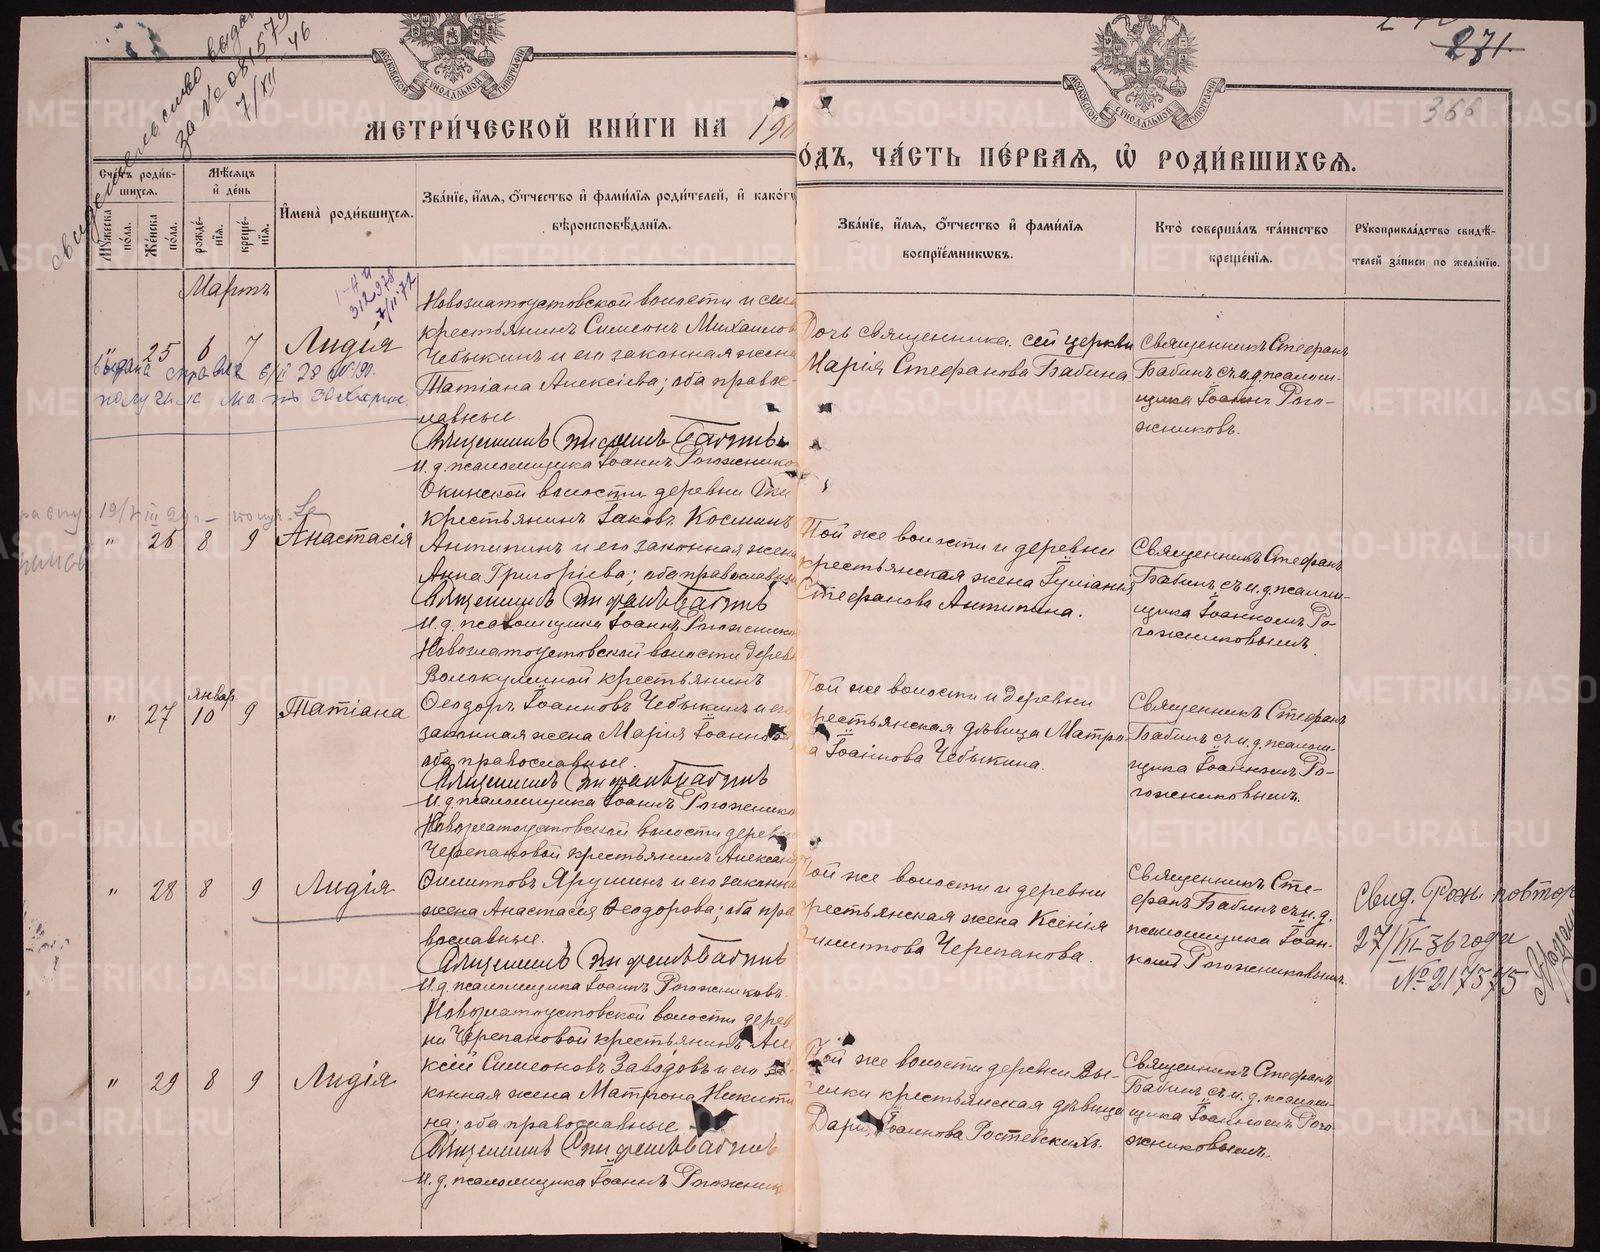 свидетельство выдан
за № 081579
7/XII 46
271
366
МОСКОВСКОЙ СѴНОДАЛЬНОЙ ТИПОГРАФІИ
МОСКОВСКОЙ СѴНОДАЛЬНОЙ ТИПОГРАФІИ
МЕТРИ́ЧЕСКОЙ КНИ́ГИ НА 190
ОДЪ, ЧА́СТЬ ПЕ́РВАЯ, Ѽ РОДИ́ВШИХСЯ.
Сче́тъ роди́в-
шихся.
Му́жеска по́ла.
Же́нска по́ла.
Мѣ́сяцъ
и҆ де́нь
рожде́нїя.
креще́нїя.
И҆мена̀ роди́вшихся.
Зва́нїе, и҆́мя, ѻ҆́тчество и҆ фами́лїя роди́телей, и҆ како́гѡ
вѣроисповѣ́данїя.
Зва́нїе, и҆́мя, ѻ҆́тчество и҆ фами́лїя
воспрїе́мниковъ.
Кто̀ соверша́лъ та́инство
креще́нїя.
Рукоприкла́дство свидѣ́-
телей за́писи по жела́нїю.
Мартъ
312978
7/II 72
" 25 6 7 Лидія
выдана справка 6/II 28
получила мать
Новозлатоустовской волости и села
крестьянинъ Симеонъ Михаилов
Чебыкинъ и его законная жена
Татіана Алексіева; оба правос-
лавные.
Священникъ Стефанъ Бабинъ
И.д. псаломщика Іоаннъ Рогожников
Дочь священника сей церкви
Марія Стефанова Бабина
Священникъ Стефанъ
Бабинъ съ и.д. псалом-
щика Іоаннъ Рого-
жниковъ.
" 26 8 9 Анастасія
Окинской волости деревни
крестьянинъ Іаковъ Косминъ
Антипинъ и его законная жена
Анна Григоріева; оба православны
Священникъ Стефанъ Бабинъ
И.д. псаломщика Іоаннъ Рогожников
Той же волости и деревни
крестьянская жена Іуліанія
Стефанова Антипина.
Священникъ Стефанъ
Бабинъ съ и.д. псалом-
щика Іоанномъ Ро-
гожниковымъ.
январ.
" 27 10 9 Татіана
Новозлатоустовской волости дерев
Волокушиной крестьянинъ
Ѳеодоръ Іоанновъ Чебыкинъ и его
законная жена Марія Іоаннов
оба православные.
Священникъ Стефанъ Бабинъ
И.д. псаломщика Іоаннъ Рогожников
Той же волости и деревни
крестьянская дѣвица Матро-
на Іоаннова Чебыкина.
Священникъ Стефанъ
Бабинъ съ и.д. псалом-
щика Іоанномъ Ро-
гожниковымъ.
" 28 8 9 Лидія
Новозлатоустовской волости дерев
Черепановой крестьянинъ Александ
Филиповъ Ярушинъ и его законна
жена Анастасія Ѳеодорова; оба пра
вославные.
Священникъ Стефанъ Бабинъ
И.д. псаломщика Іоаннъ Рогожниковъ.
Той же волости и деревни
крестьянская жена Ксенія
Филиппова Черепанова.
Священникъ Сте-
фанъ Бабинъ съ и.д.
псаломщика Іоан-
номъ Рогожниковымъ.
Свид. Рож. повтор
27/III-36 года
№ 217575
" 29 8 9 Лидія
Новозлатоустовской волости дерев
ни Черепановой крестьянинъ Але
ксій Симеоновъ Заводовъ и его за
конная жена Матрона Никити
на; оба православные
Священникъ Стефанъ Бабинъ
И.д. псаломщика Іоаннъ Рогожник
Той же волости деревни Вы-
селки крестьянская дѣвица
Дарія Іоаннова Ростовскихъ.
Священникъ Стефанъ
Бабинъ съ и.д. псалом-
щика Іоанномъ Рого-
жниковымъ.
METRIKI.GASO-URAL.RU